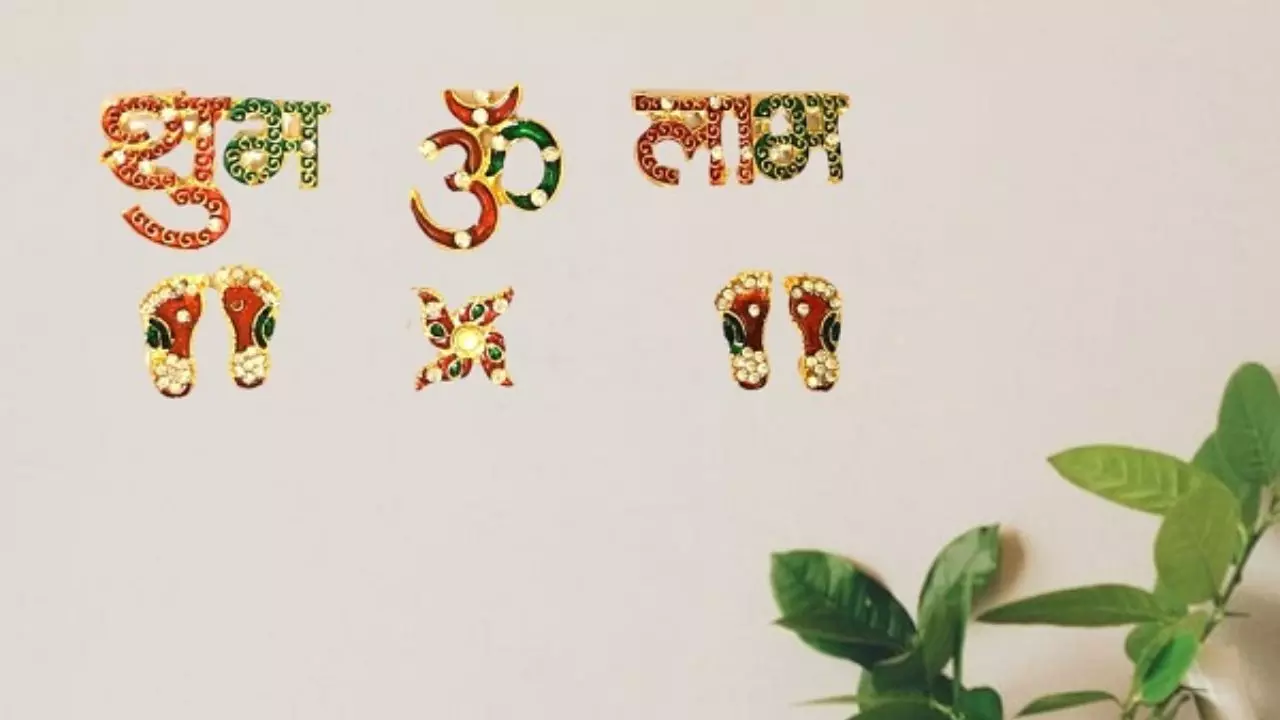 शुभ ॐ लाभ